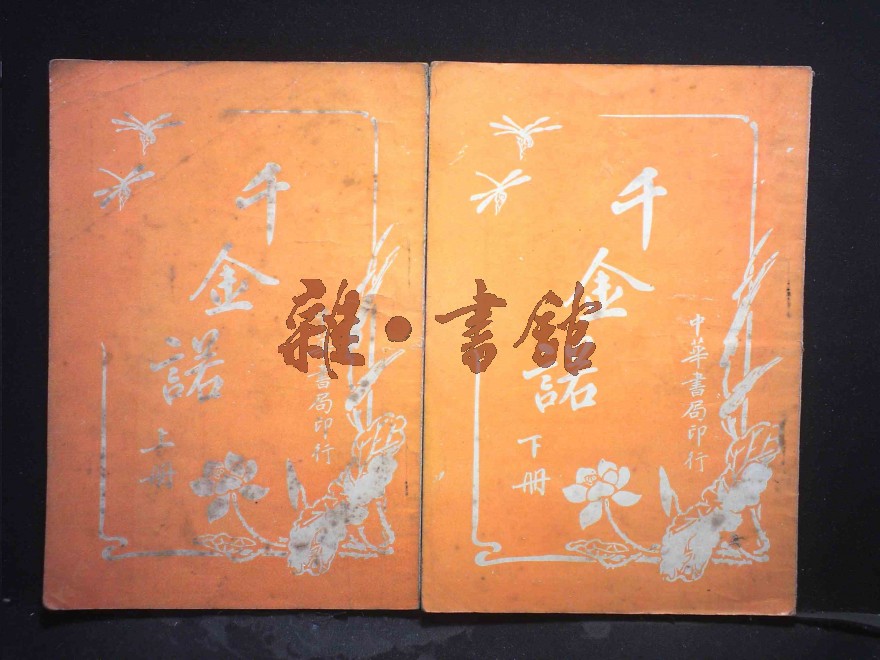 千金諾
上冊
書局印行
千金諾
下冊
中華書局印行
雜·書館